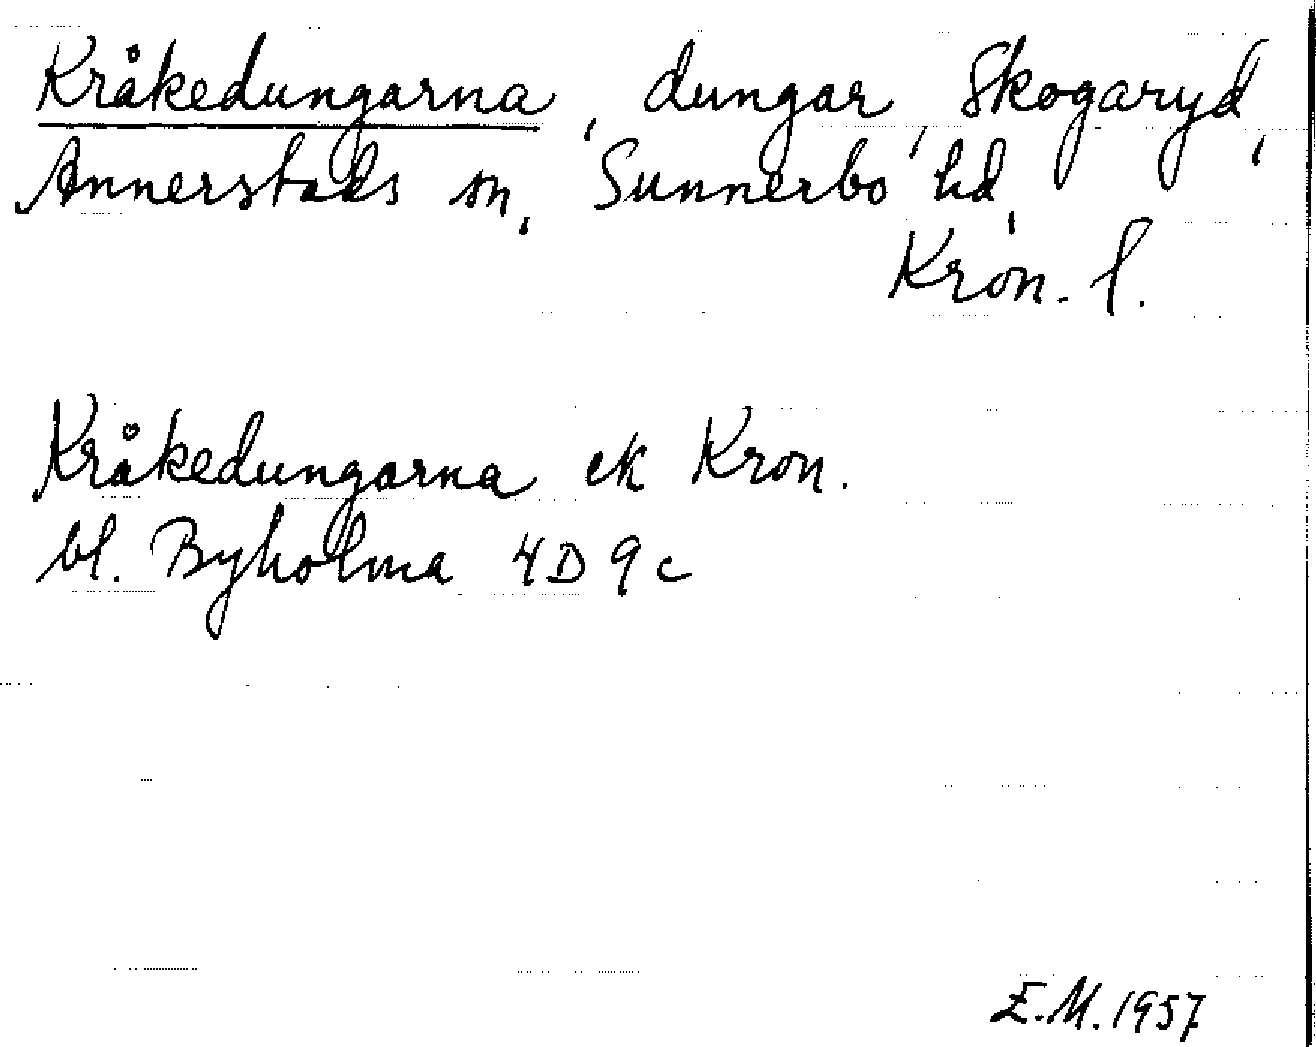 Kråkedungarna, dungar, Skogaryd,
Annerstads sn, Sunnerbo hd,
Kron. l.
Kråkedungarna ek Kron.
bl. Byholma 4D 9c
E.M. 1957